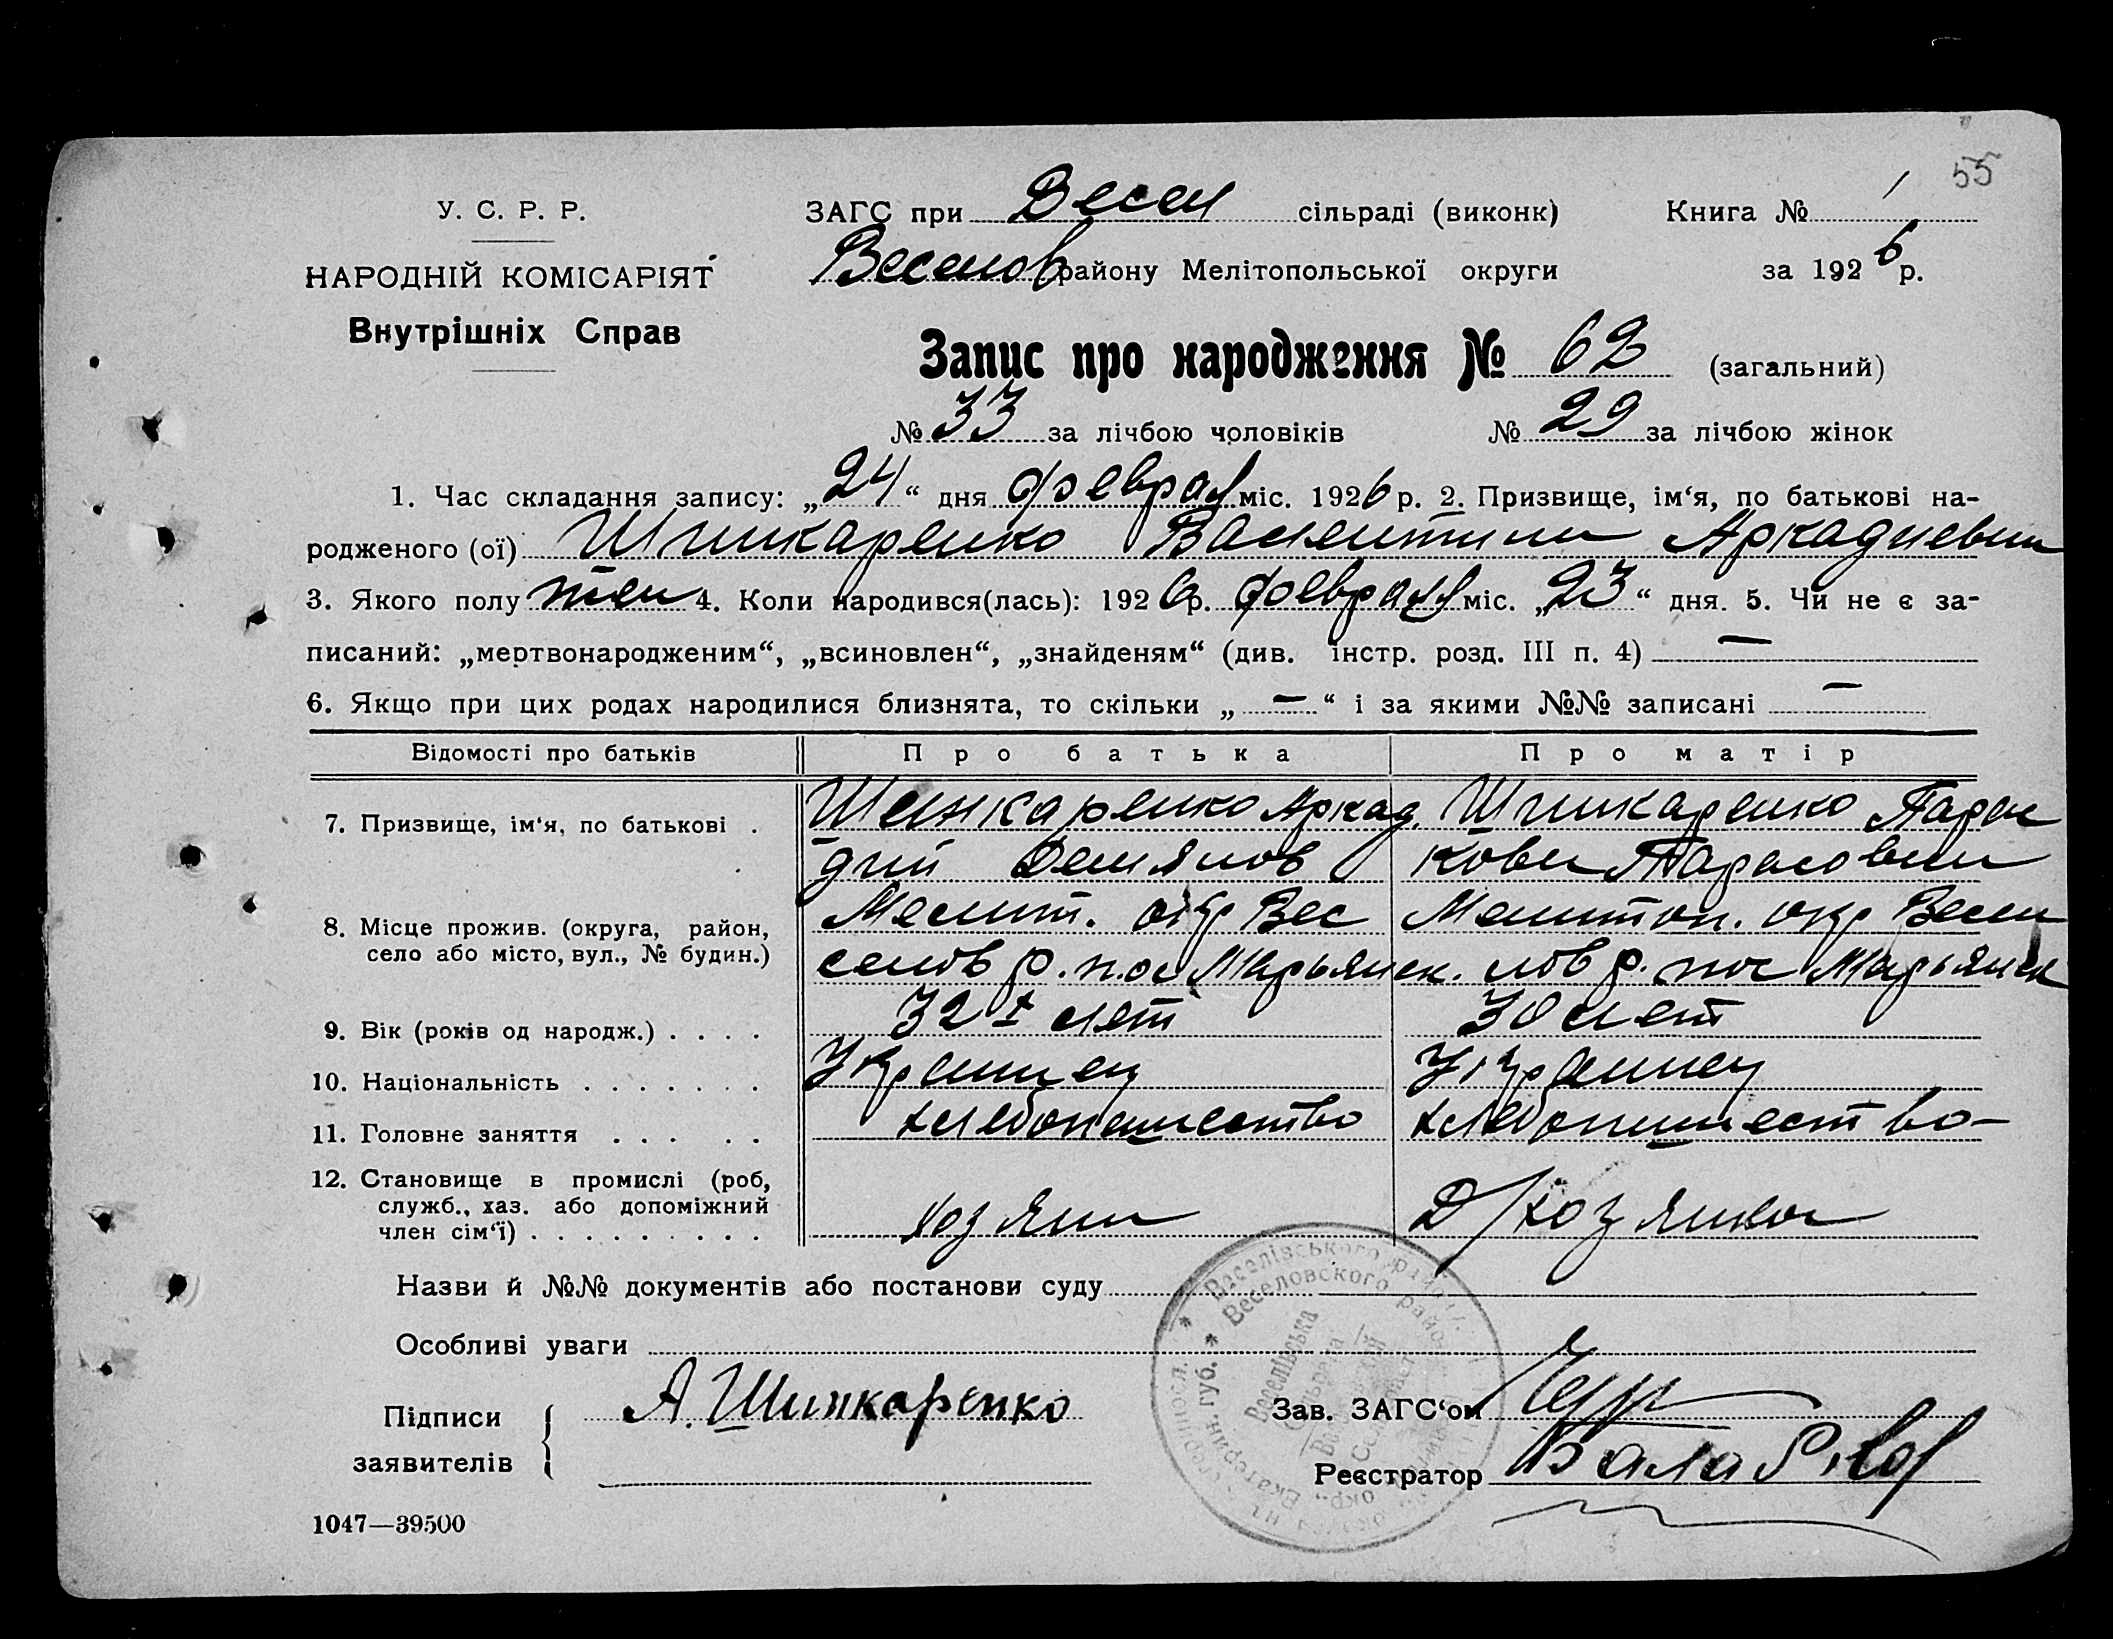 55
У. С. Р. Р.
НАРОДНІЙ КОМІСАРІЯТ
Внутрішніх Справ
ЗАГС при Весел сільраді (виконк) Книга № 1
Веселов району Мелітопольської округи за 1926 р.
Запис про народження № 62 (загальний)
№ 33 за лічбою чоловіків № 29 за лічбою жінок
1. Час складання запису: „24“ дня феврал міс. 1926 р. 2. Призвище, ім‘я, по батькові на-
родженого (ої) Шинкаренко Валентина Аркадиевна
3. Якого полу жен 4. Коли народився(лась): 1926 р. феврал міс. „23“ дня. 5. Чи не є за-
писаний: „мертвонародженим“, „всиновлен“, „знайденям“ (див. інстр. розд. III п. 4) —
6. Якщо при цих родах народилися близнята, то скільки „—“ і за якими №№ записані —
Відомості про батьків Про батька Про матір
7. Призвище, ім‘я, по батькові . Шинкаренко Аркад. Шинкаренко Парас
дий Демянов ковия Тарасовна
8. Місце прожив. (округа, район, Мелит. окр Вес Мелитоп. окр Весе
село або місто, вул., № будин.) селов р. пос Марьянск. лов р. пос Марьянск
9. Вік (років од народж.) . . . . 32 лет 30 лет
10. Національність . . . . . . . Украинец Украинец
11. Головне заняття . . . . . хлебопашество хлебопашество-
12. Становище в промислі (роб,
служб., хаз. або допоміжний
член сім‘ї) . . . . . . . . . хозяин Д/хозяйка
Назви й №№ документів або постанови суду
Особливі уваги
Підписи А. Шинкаренко Зав. ЗАГС‘ом
заявителів Реєстратор
Веселівського
Веселовского
Веселівська
Екатерин. губ.
1047—39500